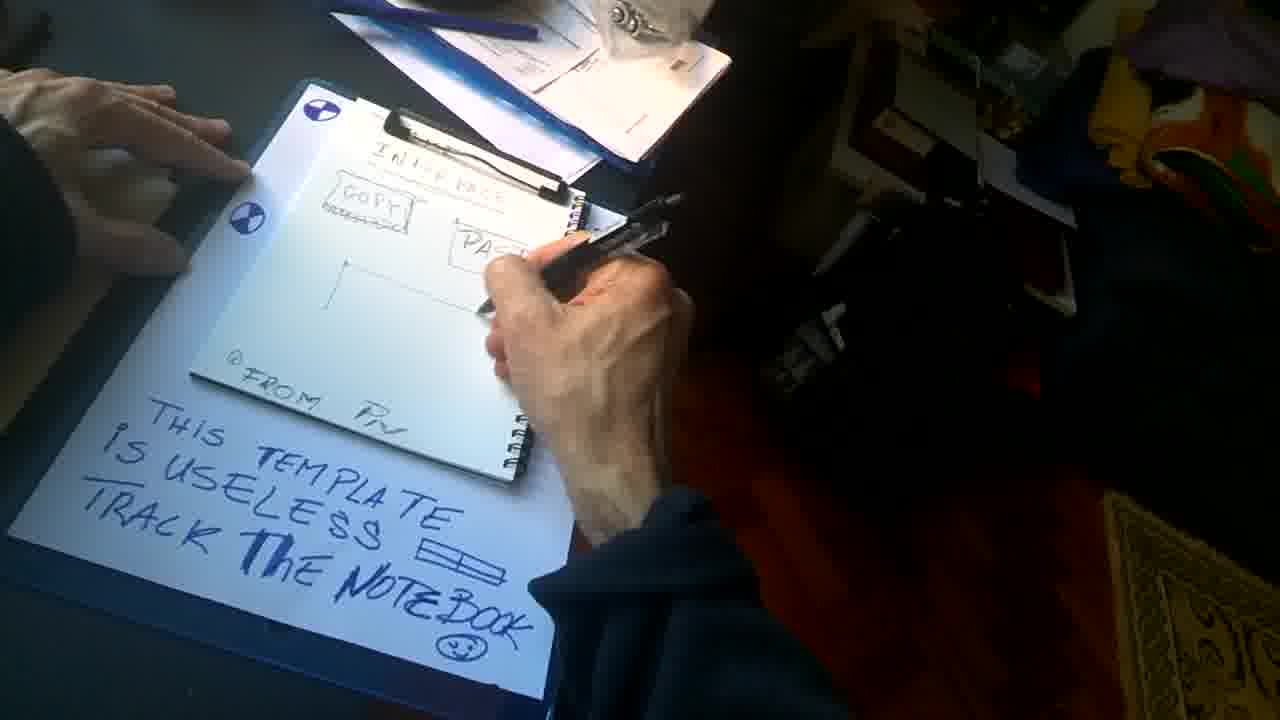 INTERFACE
COPY
PAST
@ FROM
THIS TEMPLATE
IS USELESS
TRACK THE NOTEBOOK